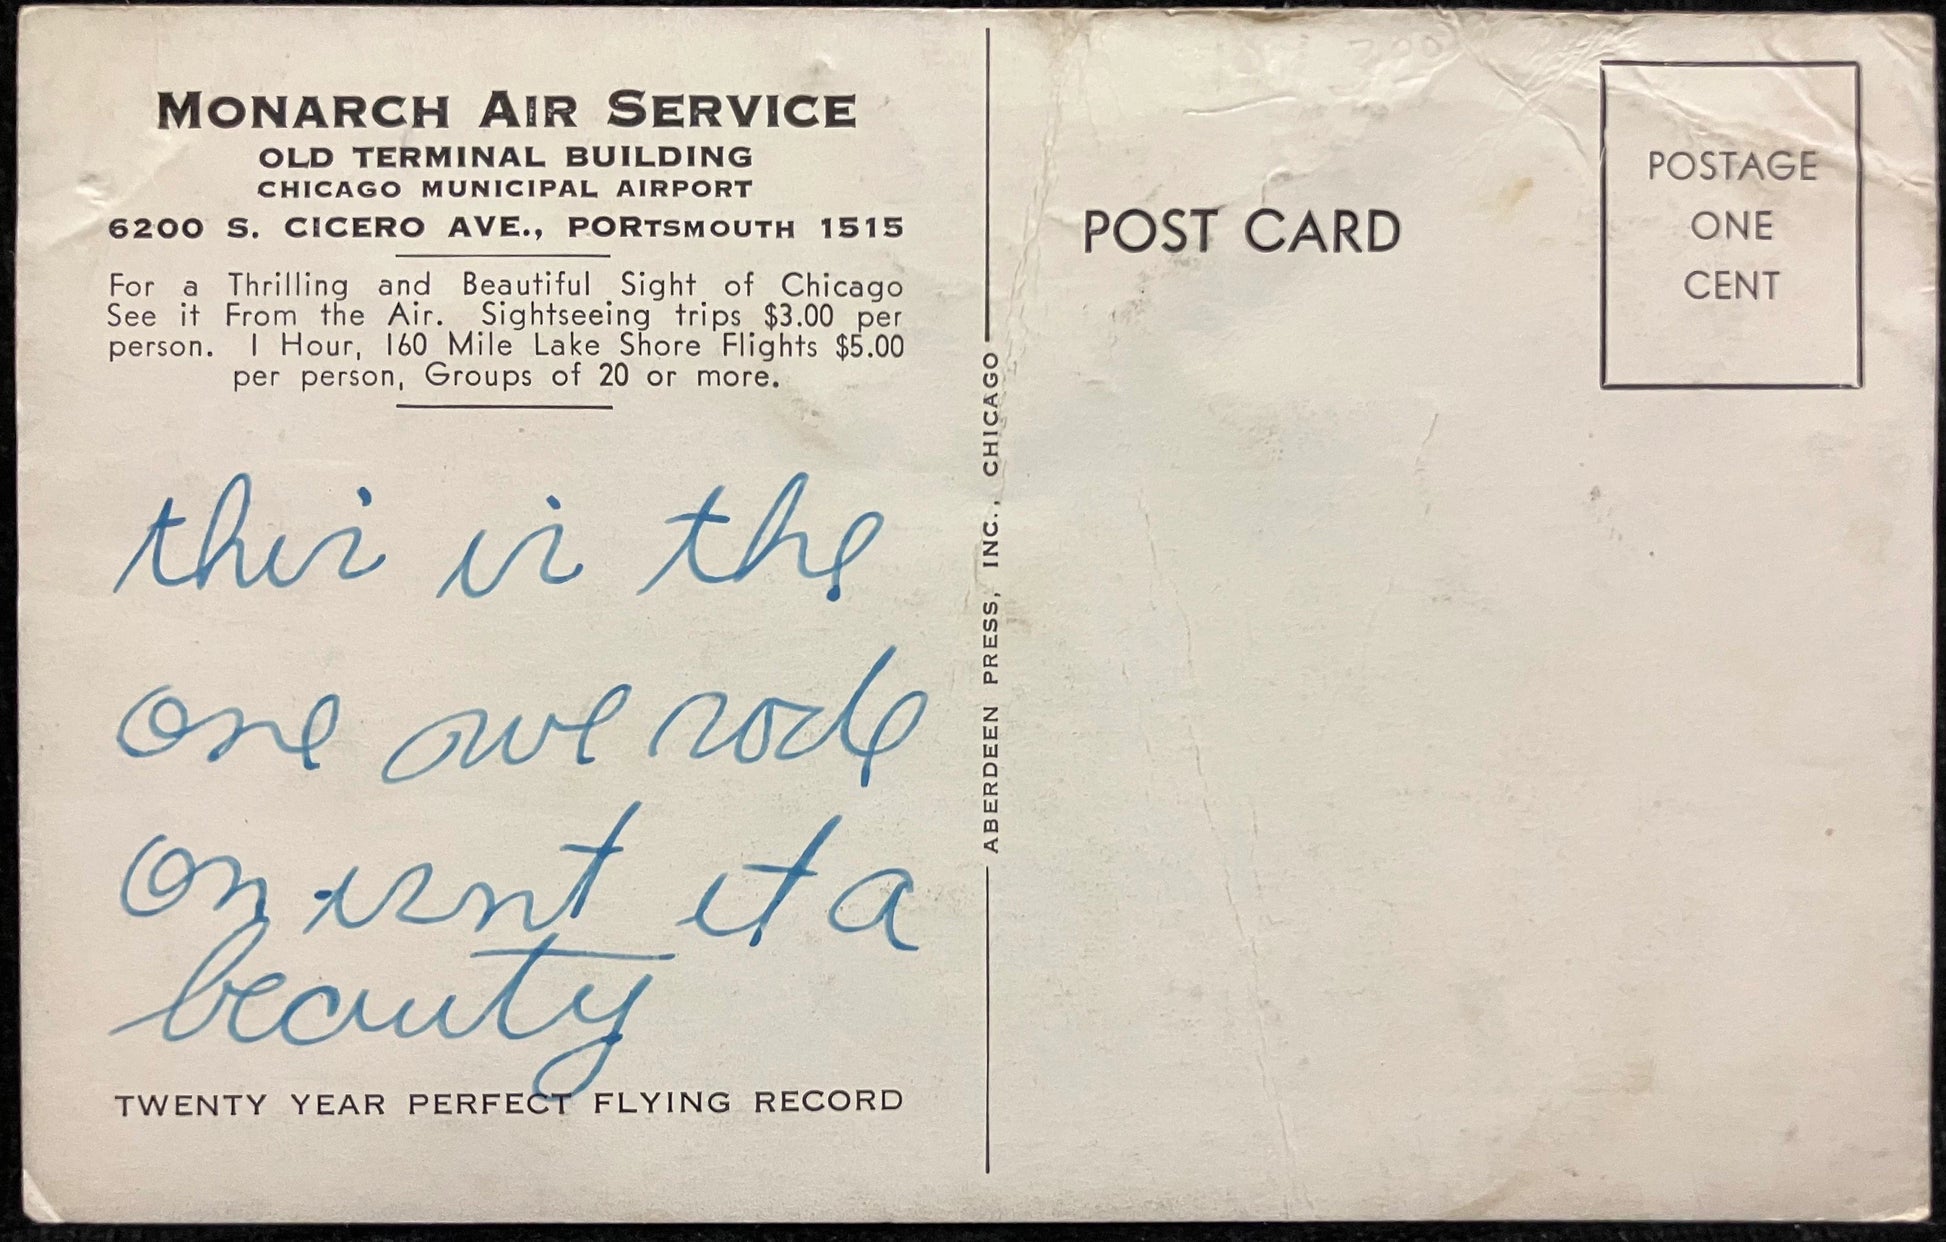 MONARCH AIR SERVICE
OLD TERMINAL BUILDING
CHICAGO MUNICIPAL AIRPORT
6200 S. CICERO AVE., PORTSMOUTH 1515
For a Thrilling and Beautiful Sight of Chicago
See it From the Air. Sightseeing trips $3.00 per
person. 1 Hour, 160 Mile Lake Shore Flights $5.00
per person, Groups of 20 or more.
this is the
one we rode
on isnt it a
beauty
TWENTY YEAR PERFECT FLYING RECORD
ABERDEEN PRESS, INC., CHICAGO
POST CARD
POSTAGE
ONE
CENT